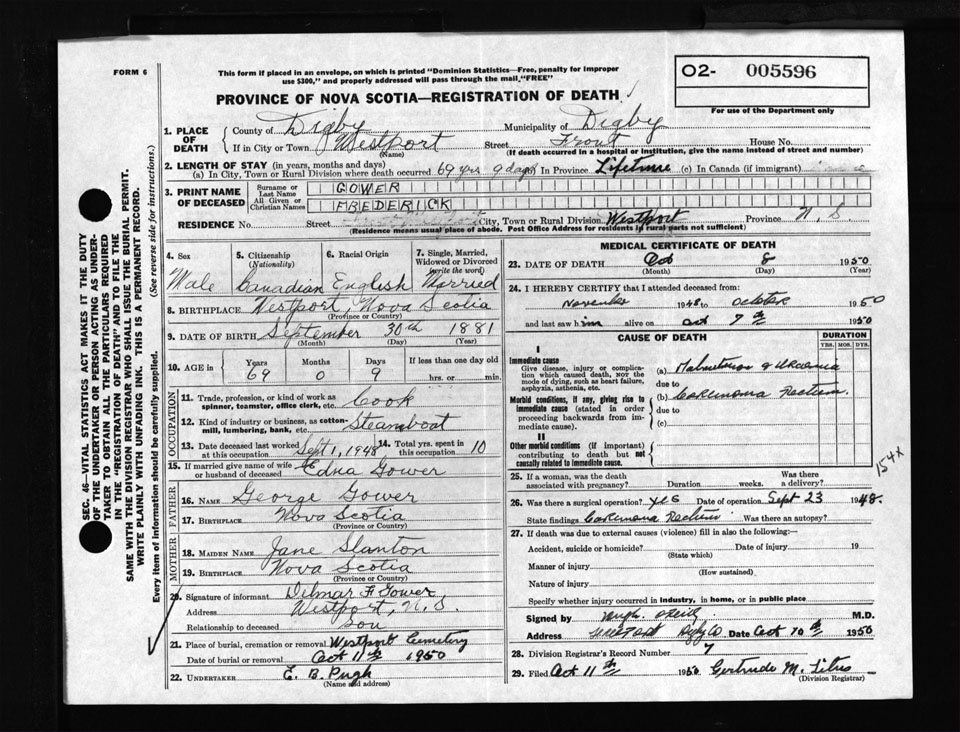 FORM 6
This form if placed in an envelope, on which is printed "Dominion Statistics—Free, penalty for improper
use $300," and properly addressed will pass through the mail "FREE"
O2- 005596
For use of the Department only
PROVINCE OF NOVA SCOTIA—REGISTRATION OF DEATH
1. PLACE OF DEATH { County of Digby Municipality of Digby
If in City or Town Westport (Name) Street Front House No.
(If death occurred in a hospital or institution, give the name instead of street and number)
2. LENGTH OF STAY (in years, months and days)
(a) In City, Town or Rural Division where death occurred 69 yrs 9 days In Province Lifetime (c) In Canada (if immigrant)
3. PRINT NAME OF DECEASED { Surname or Last Name GOWER
All Given or Christian Names FREDERICK
RESIDENCE No. Street City, Town or Rural Division Westport Province N. S.
(Residence means usual place of abode. Post Office Address for residents in rural parts not sufficient)
4. Sex 5. Citizenship (Nationality) 6. Racial Origin 7. Single, Married, Widowed or Divorced (write the word)
Male Canadian English Married
8. BIRTHPLACE Westport, Nova Scotia
(Province or Country)
9. DATE OF BIRTH September 30th 1881
(Month) (Day) (Year)
10. AGE in { Years Months Days If less than one day old
69 0 9 hrs. or min.
OCCUPATION
11. Trade, profession, or kind of work as spinner, teamster, office clerk, etc. Cook
12. Kind of industry or business, as cotton-mill, lumbering, bank, etc. Steamboat
13. Date deceased last worked at this occupation Sept 1, 1948 14. Total yrs. spent in this occupation 10
15. If married give name of wife or husband of deceased Edna Gower
FATHER
16. NAME George Gower
17. BIRTHPLACE Nova Scotia
(Province or Country)
MOTHER
18. MAIDEN NAME Jane Stanton
19. BIRTHPLACE Nova Scotia
(Province or Country)
20. Signature of informant Delmar F Gower
Address Westport, N.S.
Relationship to deceased Son
21. Place of burial, cremation or removal Westport Cemetery
Date of burial or removal Oct 11th 1950
22. UNDERTAKER E. B. Pugh
(Name and address)
MEDICAL CERTIFICATE OF DEATH
23. DATE OF DEATH Oct 8 1950
(Month) (Day) (Year)
24. I HEREBY CERTIFY that I attended deceased from:
November 1948 to October 1950
and last saw him alive on Oct 7th 1950
CAUSE OF DEATH
DURATION
YRS. MOS. DYS.
I
Immediate cause
Give disease, injury or complication which caused death, NOT the mode of dying, such as heart failure, asphyxia, asthenia, etc.
(a) & Uraemia
due to
Morbid conditions, if any, giving rise to immediate cause (stated in order proceeding backwards from immediate cause).
(b) Carcinoma Rectum
due to
(c)
II
Other morbid conditions (if important) contributing to death but not causally related to immediate cause.
154x
25. If a woman, was the death associated with pregnancy? Duration weeks. Was there a delivery?
26. Was there a surgical operation? yes Date of operation Sept 23 1948.
State findings Carcinoma Rectum Was there an autopsy?
27. If death was due to external causes (violence) fill in also the following:
Accident, suicide or homicide? Date of injury 19
(State which)
Manner of injury
(How sustained)
Nature of injury
Specify whether injury occurred in industry, in home, or in public place
Signed by M.D.
Address Digby Co Date Oct 10th 1950
28. Division Registrar's Record Number 7
29. Filed Oct 11th 1950 Gertrude M. Titus
(Division Registrar)
SEC. 46—VITAL STATISTICS ACT MAKES IT THE DUTY
OF THE UNDERTAKER OR PERSON ACTING AS UNDER-
TAKER TO OBTAIN ALL THE PARTICULARS REQUIRED
IN THE "REGISTRATION OF DEATH" AND TO FILE THE
SAME WITH THE DIVISION REGISTRAR WHO SHALL ISSUE THE BURIAL PERMIT.
WRITE PLAINLY WITH UNFADING INK. THIS IS A PERMANENT RECORD.
Every item of information should be carefully supplied. (See reverse side for instructions.)